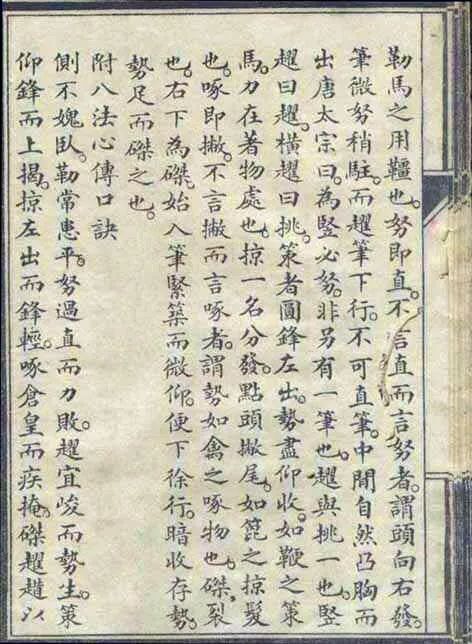 勒馬之用韁也。努即直。不言直而言努者。謂頭向右發。
筆微努稍駐。而趯筆下行。不可直筆。中間自然凸胸而
出。唐太宗曰。為竪必努。非另有一筆也。趯與挑一也。竪
趯曰趯。橫趯曰挑。策者圓鋒左出。勢盡仰收。如鞭之策
馬。力在著物處也。掠一名分發。點頭撇尾。如箆之掠髮
也。啄即撇。不言撇而言啄者。謂勢如禽之啄物也。磔。裂
也。右下為磔。始入筆緊築而微仰。便下徐行。暗收存勢。
勢足而磔之也。
附八法心傳口訣
側不媿臥。勒常患平。努過直而力敗。趯宜峻而勢生。策
仰鋒而上揭。掠左出而鋒輕。啄倉皇而疾掩。磔趯趞以